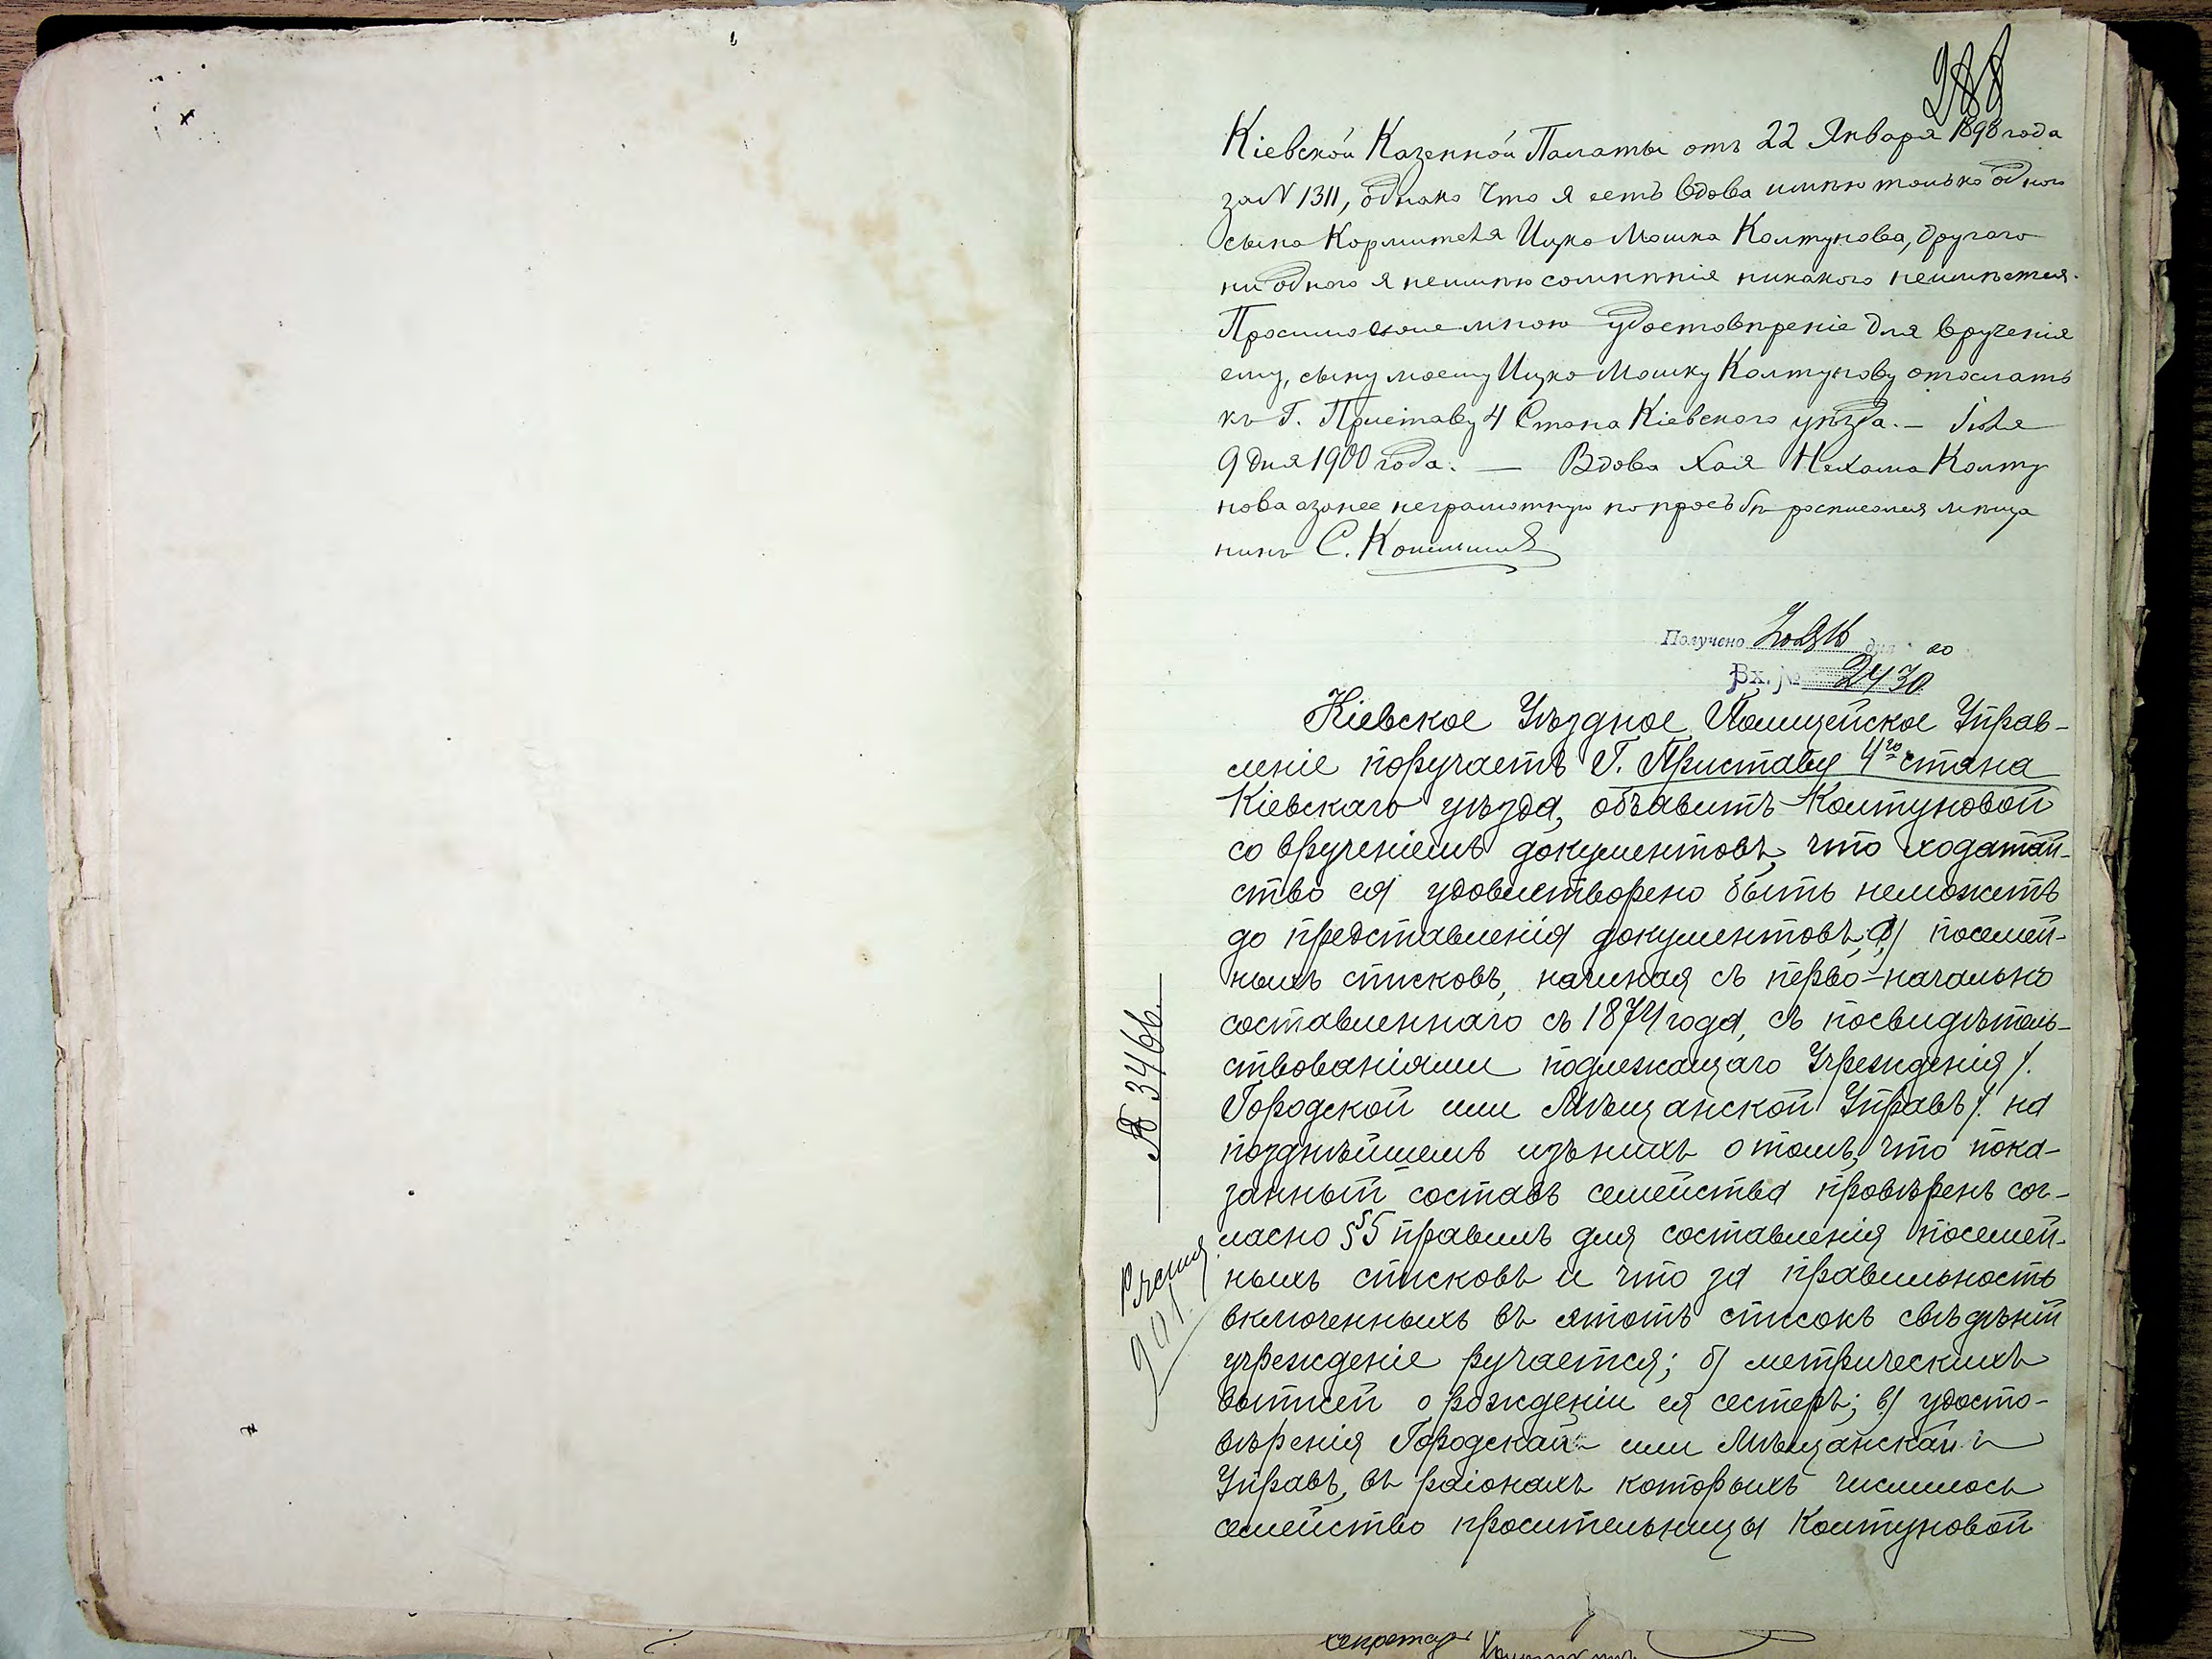 288
Кіевской Казенной Палаты отъ 22 Января 1898 года
за N 1311, однако Что я есть вдова имѣю только одного
сына Кормителя Ицко Мошка Колтунова, другого
ни одного я неимѣю сомнѣнія никакого неимѣется.
Просимое мною удостовѣреніе для врученія
ему, сыну моему Ицко-Мошку Колтунову отослать
къ Г. Приставу 4 Стана Кіевского уѣзда. — Іюля
9 дня 1900 года. — Вдова Хая Нехама Колту
нова азанее неграмотную по просьбѣ росписался мѣща
нинъ С.
Получено дня 00
Вх. № 2430
Кіевское Уѣздное Полицейское Управ-
леніе поручаетъ Г. Приставу 4го стана
Кіевскаго уѣзда, объявить Колтуновой
со врученіемъ документовъ, что ходатай-
ство ея удовлетворено быть неможетъ
до представленія документовъ; а) посемей-
ныхъ списковъ, начиная съ перво-начально
составленнаго съ 1874 года, съ посвидѣтель-
ствованіями подлежащаго Учрежденія /.
Городской или Мѣщанской Управъ /. на
позднѣйшемъ изъ нихъ о томъ, что пока-
занный составъ семейства провѣренъ сог-
ласно § 5 правилъ для составленія посемей-
ныхъ списковъ и что за правильность
включенныхъ въ этотъ списокъ свѣдѣній
учрежденіе ручается; б) метрическихъ
выписей о рожденіи ея сестеръ; в) удосто-
вѣренія Городской или Мѣщанской
Управъ, въ раіонахъ которыхъ числилось
семейство просительницы Колтуновой
№ 3466.
секретарь